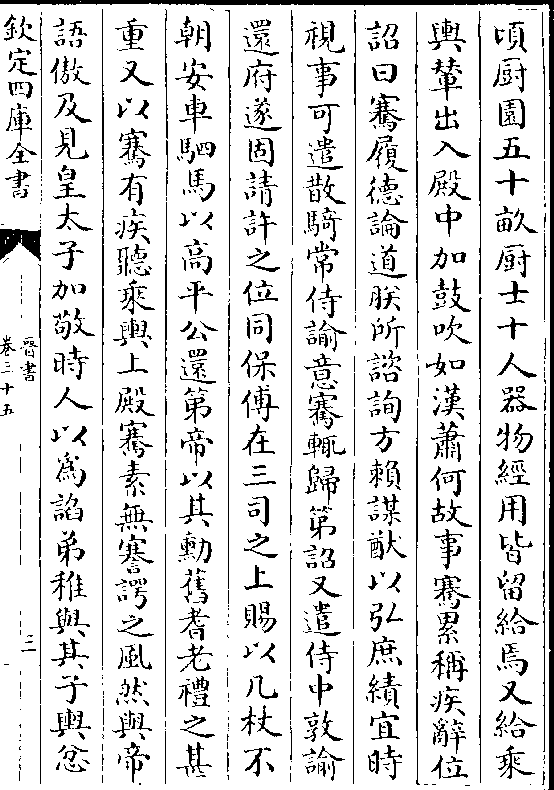 頃厨園五十畝厨士十人器物經用皆留給焉又給乘
輿輦出入殿中加鼓吹如漢蕭何故事騫累稱疾辭位
詔曰騫履德論道朕所諮詢方賴謀猷以弘庶績宜時
視事可遣散騎常侍諭意騫輒歸第詔又遣侍中敦諭
還府遂固請許之位同保傅在三司之上賜以几杖不
朝安車駟馬以高平公還第帝以其勳舊耆老禮之甚
重又以騫有疾聽乘輿上殿騫素無謇諤之風然與帝
語傲及見皇太子加敬時人以為諂弟稚與其子輿忿
欽定四庫全書
晉書
卷三十五
三